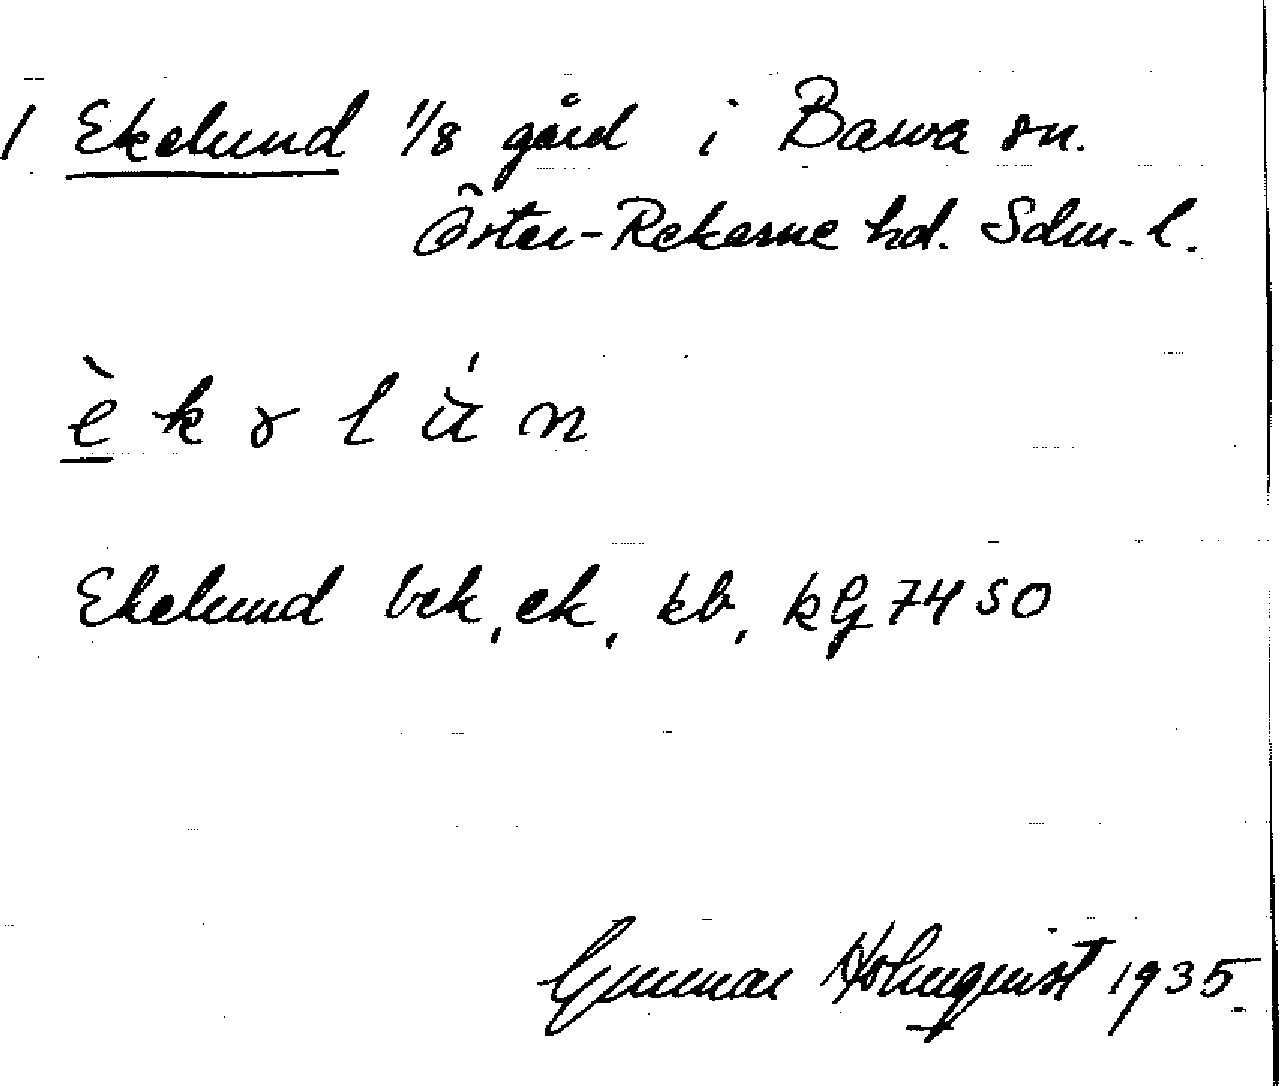 1 Ekelund 1/8 gård i Barva sn.
Öster-Rekarne hd. Sdm. l.
è k ɤ l ú n
Ekelund bek, ek, kb, kG 74 SO
Gunnar Holmquist 1935.